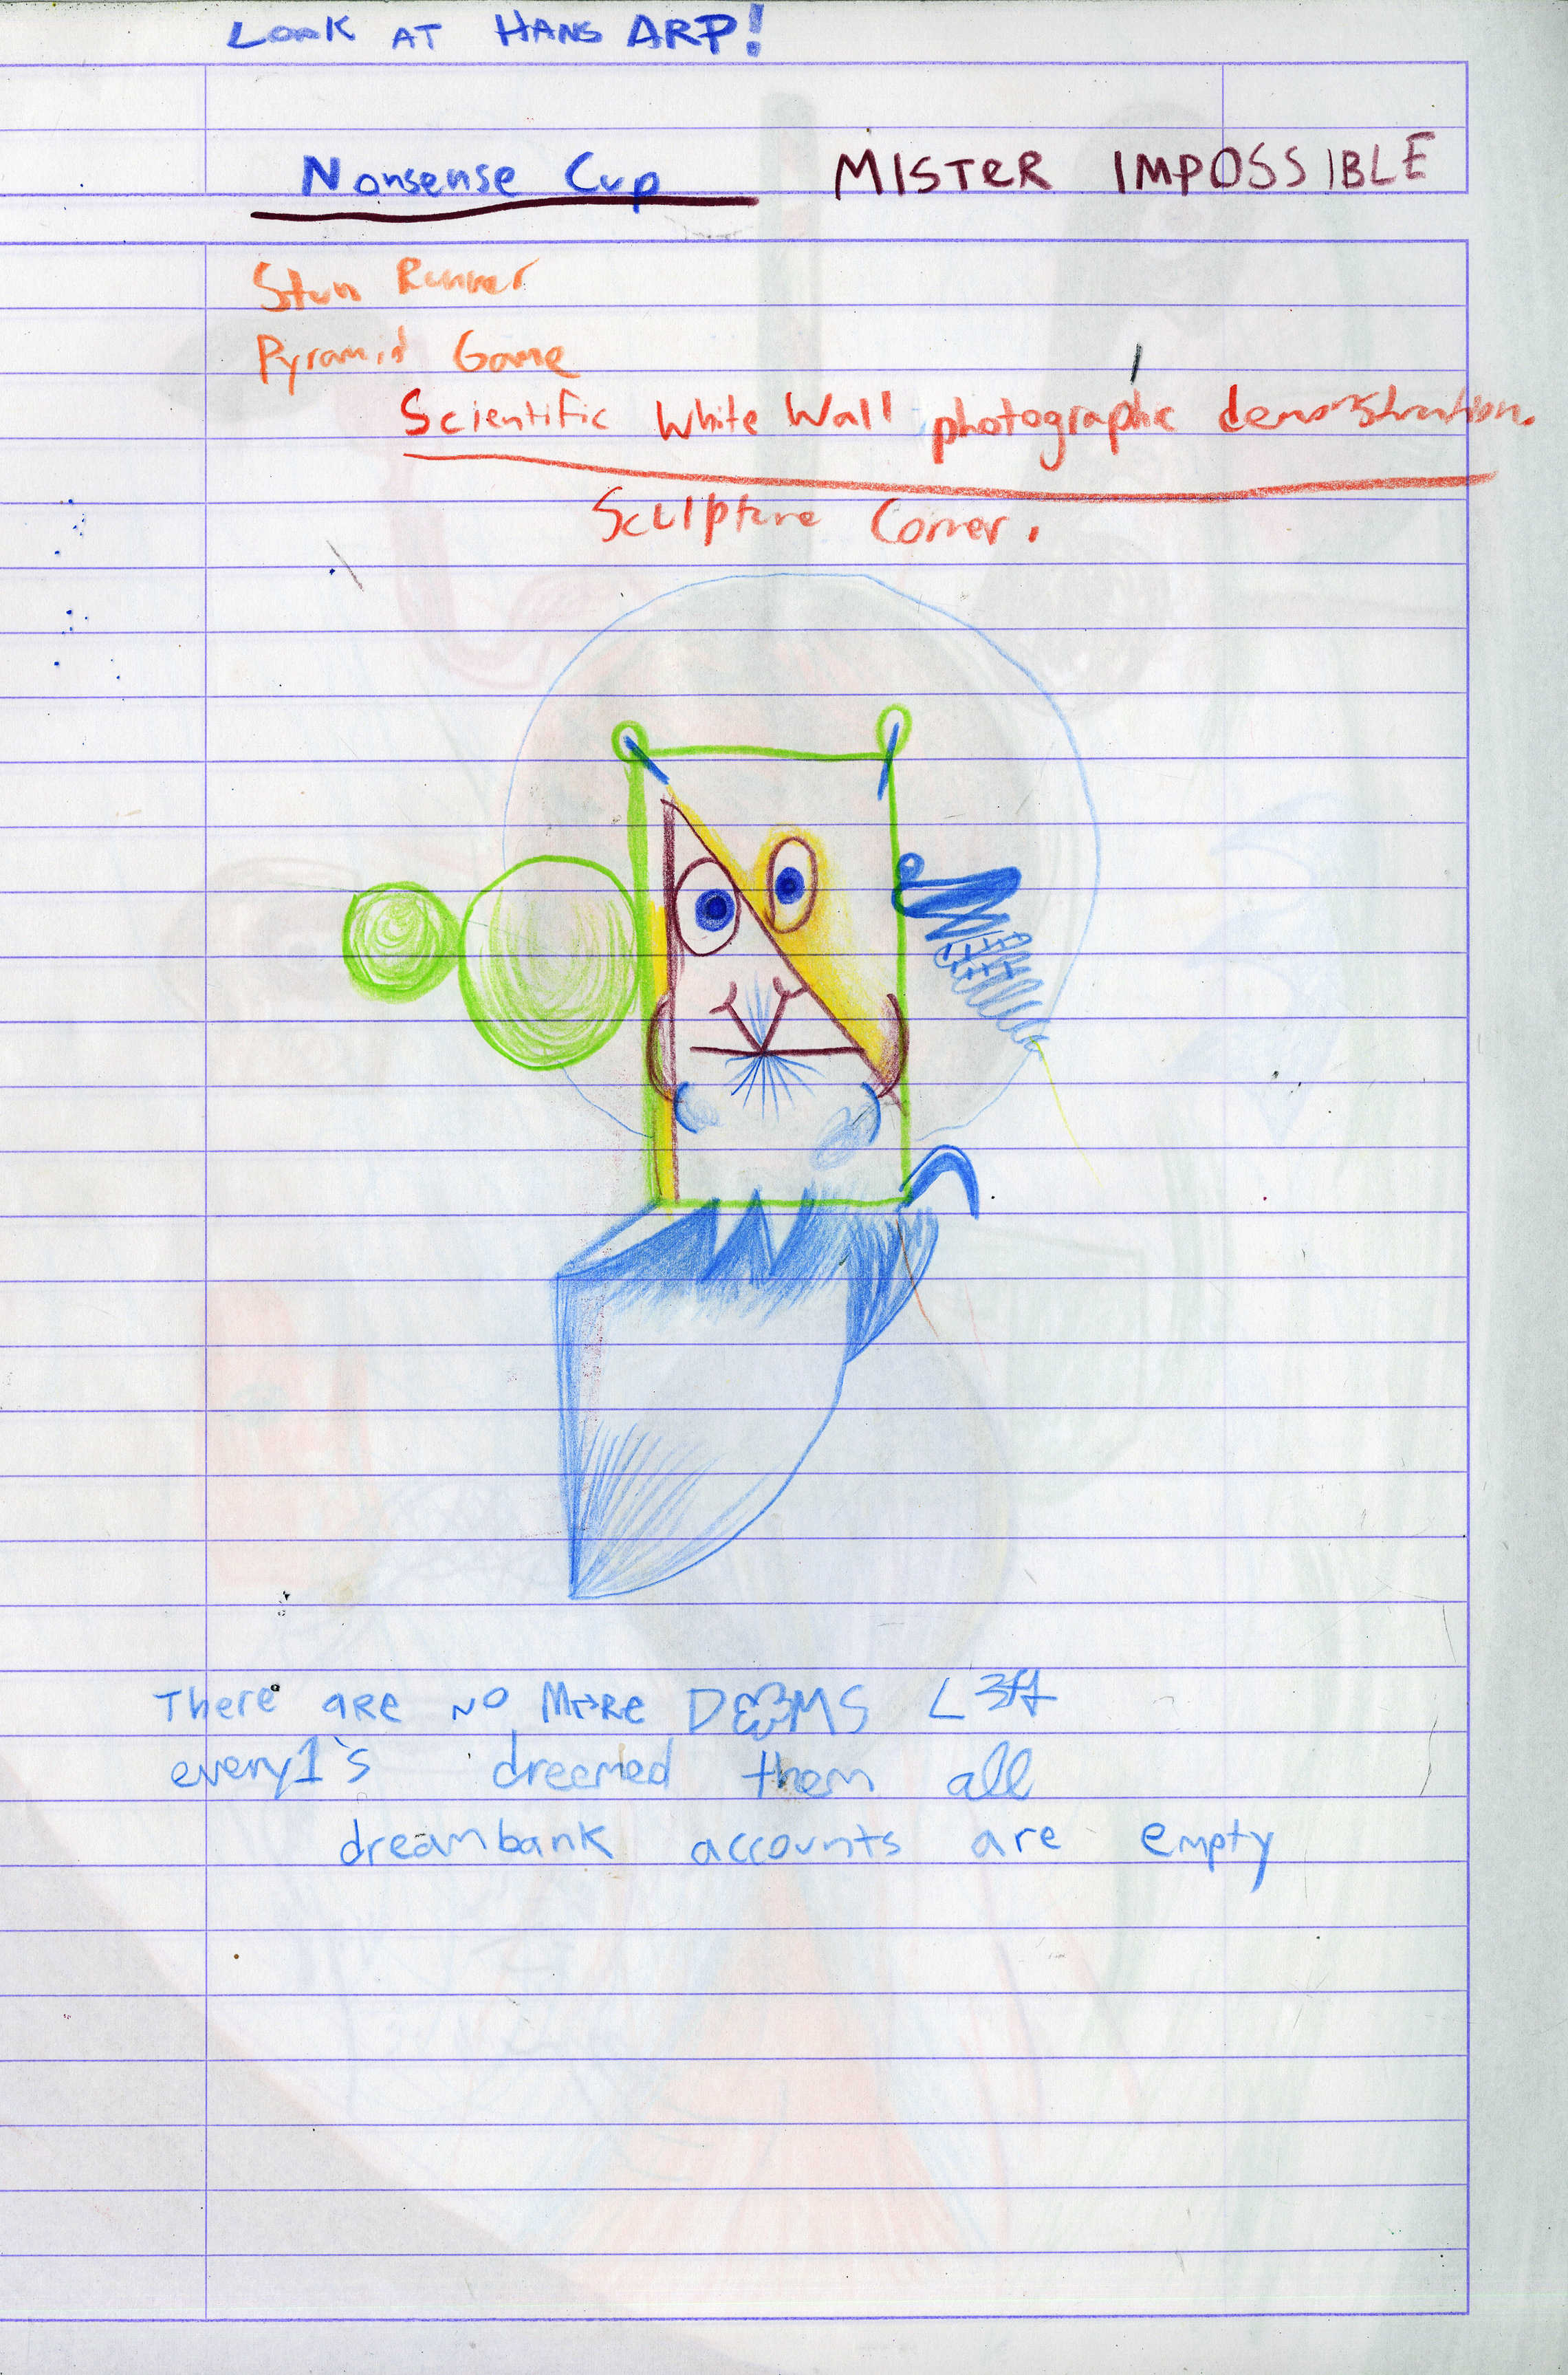 LOOK AT HANS ARP!
Nonsense Cup MISTER IMPOSSIBLE
Stun Runner
Pyramid Game
Scientific White Wall photographic demonstration.
Sculpture Corner.
There are NO MORE L3ft
every1's dreemed them all
dreambank accounts are empty